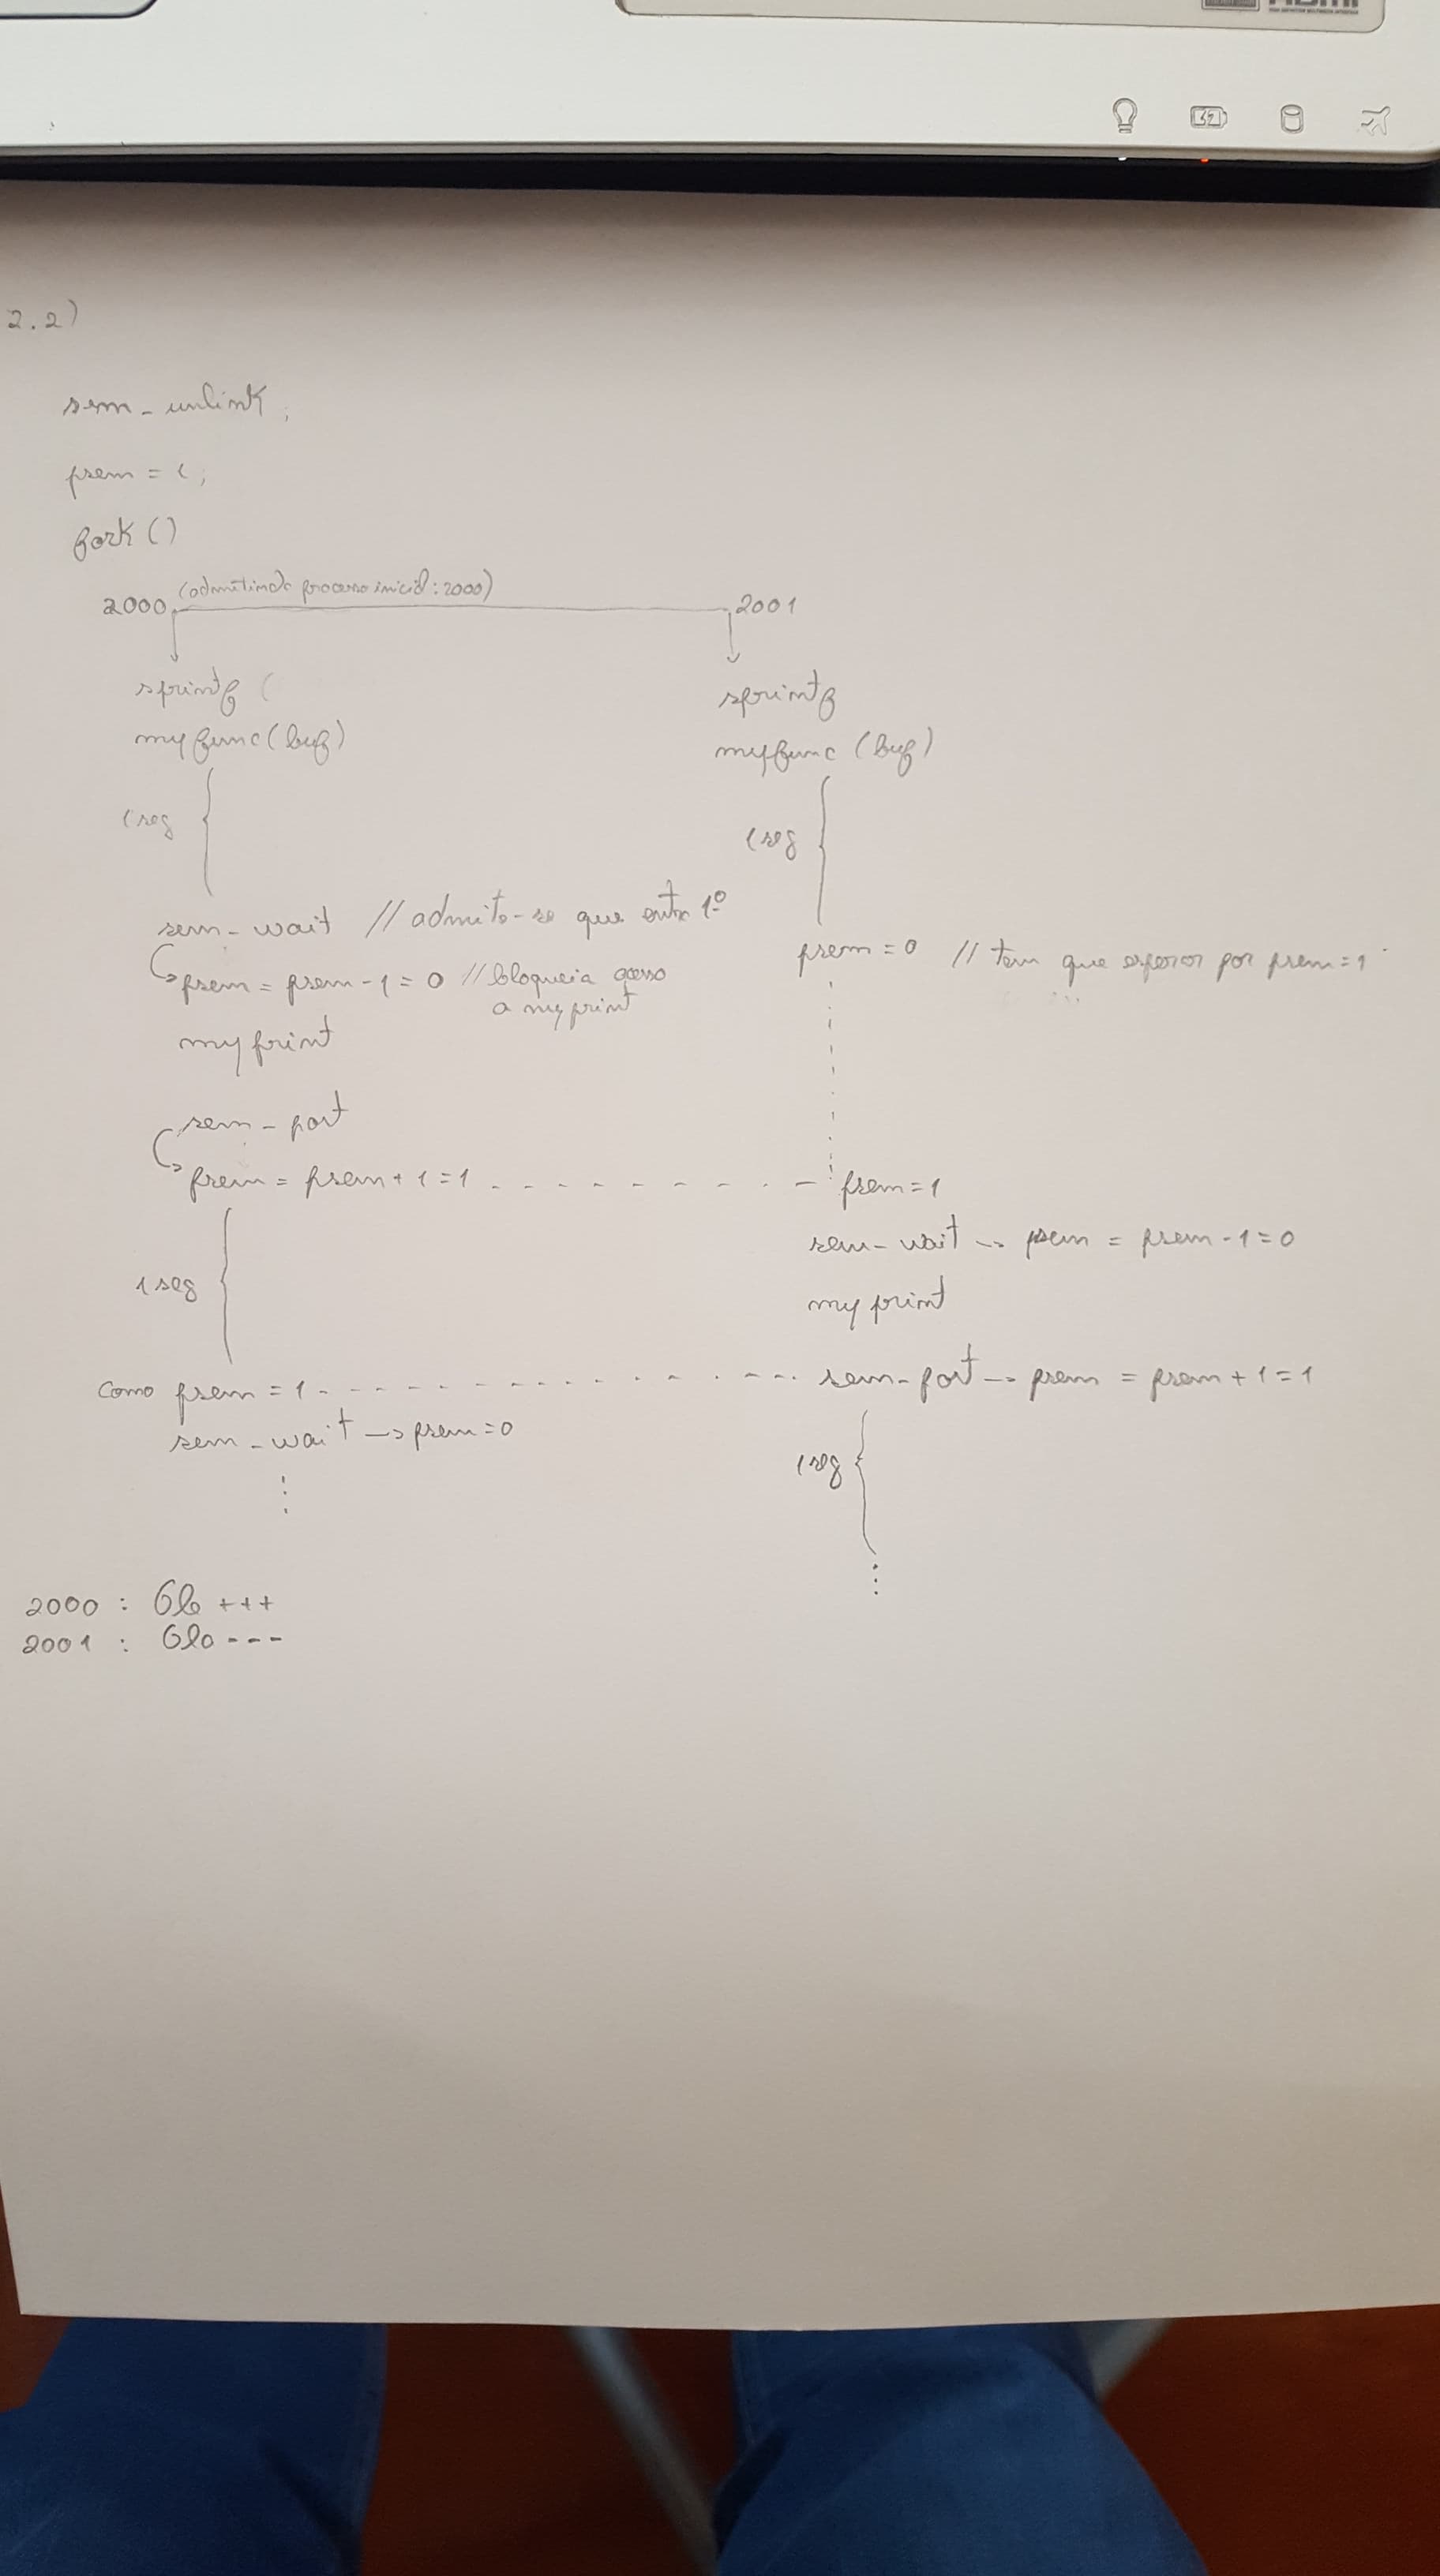 HDMI
2.2)
sem_unlink;
psem = 1;
fork()
2000 (admitindo processo inicial: 2000) 2001
sprintf (
myfunc(buf)
1 seg
sem_wait // admite-se que entra 1º
psem = psem - 1 = 0 // bloqueia acesso
a myprint
myprint
sem_post
psem = psem + 1 = 1
1 seg
como psem = 1
sem_wait -> psem = 0
sprintf
myfunc (buf)
1 seg
psem = 0 // tem que esperar por psem = 1
psem = 1
sem_wait -> psem = psem - 1 = 0
myprint
sem_post -> psem = psem + 1 = 1
1 seg
2000 : Olo +++
2001 : Olo ---